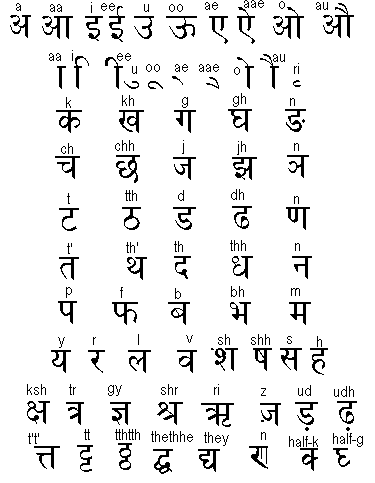 a aa i ee u oo ae aae o au
अ आ इ ई उ ऊ ए ऐ ओ औ
aa i ee u oo ae aae o au ri
ा ि ी ु ू े ै ो ौ ृ
k kh g gh n
क ख ग घ ङ
ch chh j jh n
च छ ज झ ञ
t tth d dh n
ट ठ ड ढ ण
t' th' th thh n
त थ द ध न
p f b bh m
प फ ब भ म
y r l v sh shh s h
य र ल व श ष स ह
ksh tr gy shr ri z ud udh
क्ष त्र ज्ञ श्र ऋ ज़ ड़ ढ़
t't' tt tthtth thethhe they n half-k half-g
त्त ट्ट ठ्ठ द्ध द्य क्